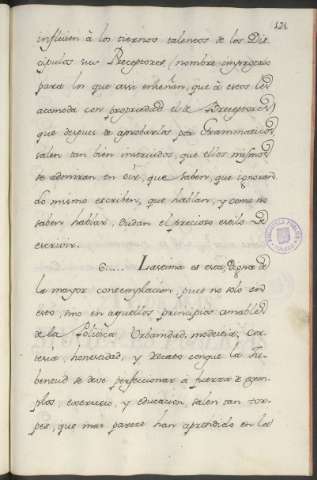 121
influien à los tiernos talentos de los Dis
cipulos sus Preceptores (nombre impropio
para los que assi enseñan, que à estos les
acomoda con propriedad el de Preceptores)
que despues de aprobarlos por Grammaticos
salen tan bien instruidos, que ellos mismos
se admiran en oir, que saben, que ignoran
do mismo escriben, que hablan, y como no
saben hablar, dudan el precioso estilo de
escrivir.
6.... Lastima es esta, digna de
la mayor contemplacion, pues no solo en
esto, sino en aquellos principios amables
de la Politica Urbanidad, modestia, Cor
tesia, honestidad, y Decoro conque la Ju-
bentud se deve perfeccionar à fuerza de exem
plos, exercicio, y educacion, salen tan tor-
pes, que mas parece han aprendido en las